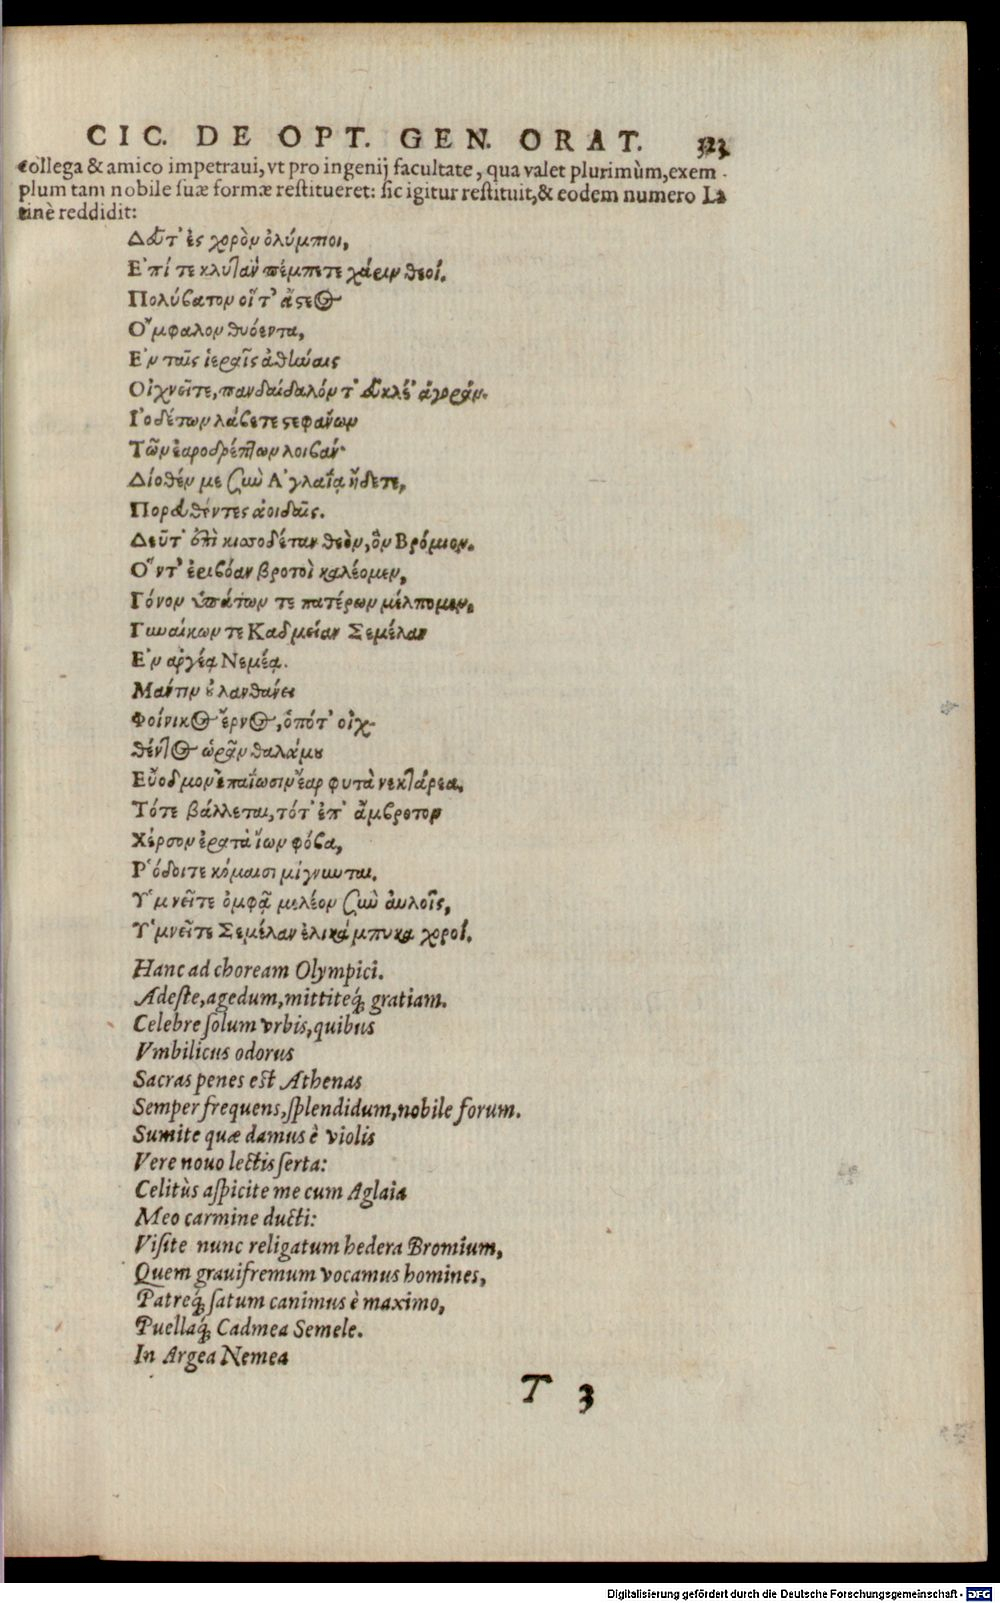 CIC. DE OPT. GEN. ORAT. 323
collega & amico impetraui, vt pro ingenij facultate, qua valet plurimùm, exem-
plum tam nobile suæ formæ restitueret: sic igitur restituit, & eodem numero La
tinè reddidit:
Δεῦτ' ἐς χορὸν ὀλύμπιοι,
Ε'πί τε κλυτὰν πέμπετε χάριν θεοί.
Πολύβατον οἵ τ' ἄστεος
Ο῎μφαλον θυόεντα,
Ε'ν ταῖς ἱεραῖς ἀθήναις
Οἰχνεῖτε, πανδαίδαλόν τ' εὐκλέ' ἀγοράν.
Ι'οδέτων λάβετε στεφάνων
Τῶν ἐαροδρέπτων λοιβάν·
Διόθέν με σὺν Α'γλαΐᾳ ἴδετε,
Πορευθέντες ἀοιδαῖς.
Δεῦτ' ἐπὶ κισσοδέταν θεὸν, ὃν Βρόμιον.
Ο῞ντ' ἐριβόαν βροτοὶ καλέομεν,
Γόνον ὑπάτων τε πατέρων μέλπομεν,
Γυναίκων τε Καδμείαν Σεμέλαν
Ε'ν ἀργέᾳ Νεμέᾳ.
Μάντιν οὐ λανθάνει
Φοίνικος ἔρνος, ὁπότ' οἰχ-
θέντος ὡρᾶν θαλάμου
Εὔοδμον ἐπαΐωσιν ἔαρ φυτὰ νεκτάρεα.
Τότε βάλλεται, τότ' ἐπ' ἄμβροτον
Χέρσον ἐραταὶ ἴων φόβα,
Ρ'όδοιτε κόμαισι μίγνυνται.
Υ'μνεῖτε ὀμφᾷ μελέον σὺν ἀυλοῖς,
Υ'μνεῖτε Σεμέλαν ἑλικάμπυκα χοροί.
Hanc ad choream Olympici.
Adeste, agedum, mittiteq́; gratiam.
Celebre solum vrbis, quibus
Vmbilicus odorus
Sacras penes est Athenas
Semper frequens, splendidum, nobile forum.
Sumite quæ damus è violis
Vere nouo lectis serta:
Celitùs aspicite me cum Aglaia
Meo carmine ducti:
Visite nunc religatum hedera Bromium,
Quem grauifremum vocamus homines,
Patreq́; satum canimus è maximo,
Puellaq́; Cadmea Semele.
In Argea Nemea
T 3
Digitalisierung gefördert durch die Deutsche Forschungsgemeinschaft - DFG